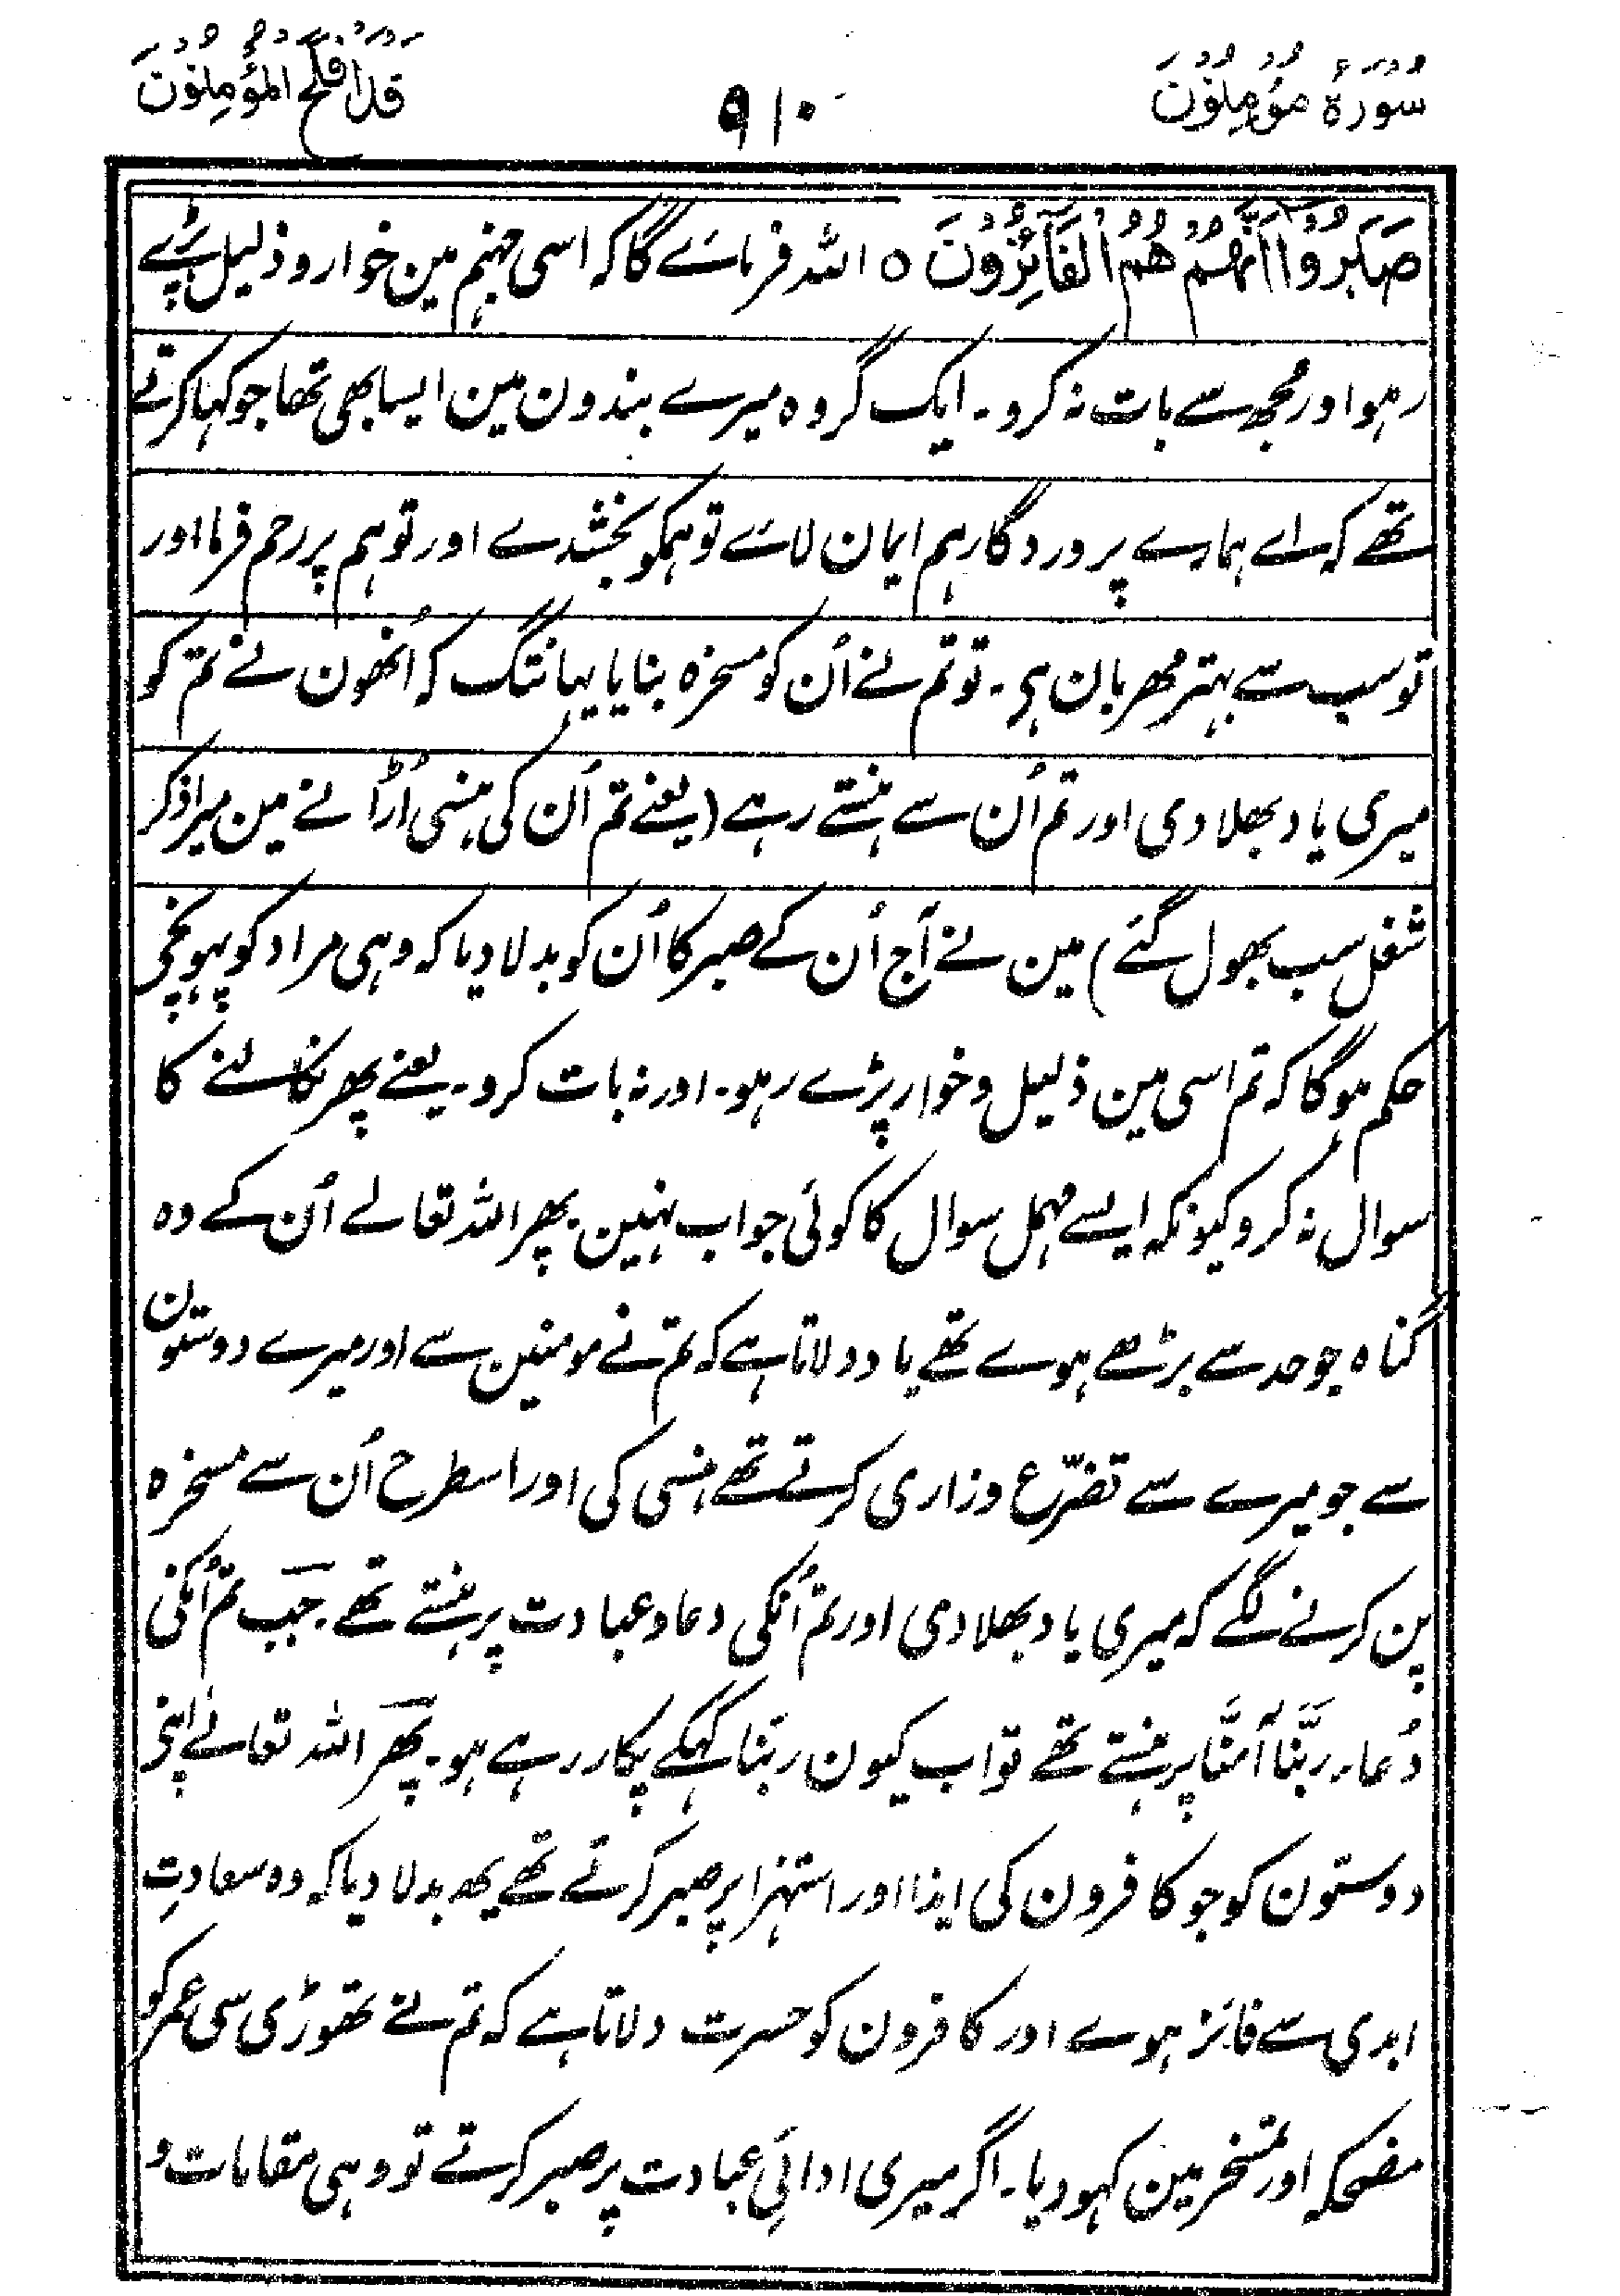 سُوْرَةُ مُؤْمِنُوْنَ
۹۱۰
قَدْ اَفْلَحَ الْمُؤْمِنُوْنَ
صَبَرُوْٓا اَنَّهُمْ هُمُ الْفَآئِزُوْنَ ○ اللہ فرمائے گا کہ اسی جہنم مین خوار و ذلیل پڑے
رہو اور مجھ سے بات نہ کرو ۔ ایک گروہ میرے بندون مین ایسا بھی تھا جو کہا کرتے
تھے کہ اے ہمارے پروردگار ہم ایمان لائے تو ہمکو بخشدے اور تو ہم پر رحم فرما اور
تو سب سے بہتر مہربان ہی ۔ تو تم نے اُن کو مسخرہ بنایا یہانتک کہ اُنھون نے تم کو
میری یاد بھلا دی اور تم اُن سے ہنستے رہے (یعنے تم اُن کی ہنسی اُڑانے مین میرا ذکر
شغل سب بھول گئے) مین نے آج اُن کے صبر کا اُن کو بدلا دیا کہ وہی مراد کو پہونچے
حکم ہوگا کہ تم اسی مین ذلیل و خوار پڑے رہو ۔ اور نہ بات کرو ۔ یعنے پھر نکالنے کا
سوال نہ کرو کیونکہ ایسے مہمل سوال کا کوئی جواب نہین ۔ پھر اللہ تعالے اُن کے وہ
گناہ جو حد سے بڑھے ہوے تھے یاد دلاتا ہے کہ تم نے مومنین سے اور میرے دوستون
سے جو میرے سے تضرّع و زاری کرتے تھے ہنسی کی اور اسطرح اُن سے مسخرہ
پن کرنے لگے کہ میری یاد بھلا دی اور تم اُنکی دعا و عبادت پر ہنستے تھے ۔ جب تم اُنکی
دُعاء ربَّنَا آمَنَّا پر ہنستے تھے تو اب کیون ربّنا کہکے پکار رہے ہو ۔ پھر اللہ تعالے اپنے
دوستون کو جو کافرون کی ایذا اور استہزا پر صبر کرتے تھے یہ بدلا دیا کہ وہ سعادتِ
ابدی سے فائز ہوے اور کافرون کو حسرت دلاتا ہے کہ تم نے تھوڑی سی عمر کو
مضحکہ اور تمسخر مین کہو دیا ۔ اگر میری ادائیِ عبادت پر صبر کرتے تو وہی مقامات و